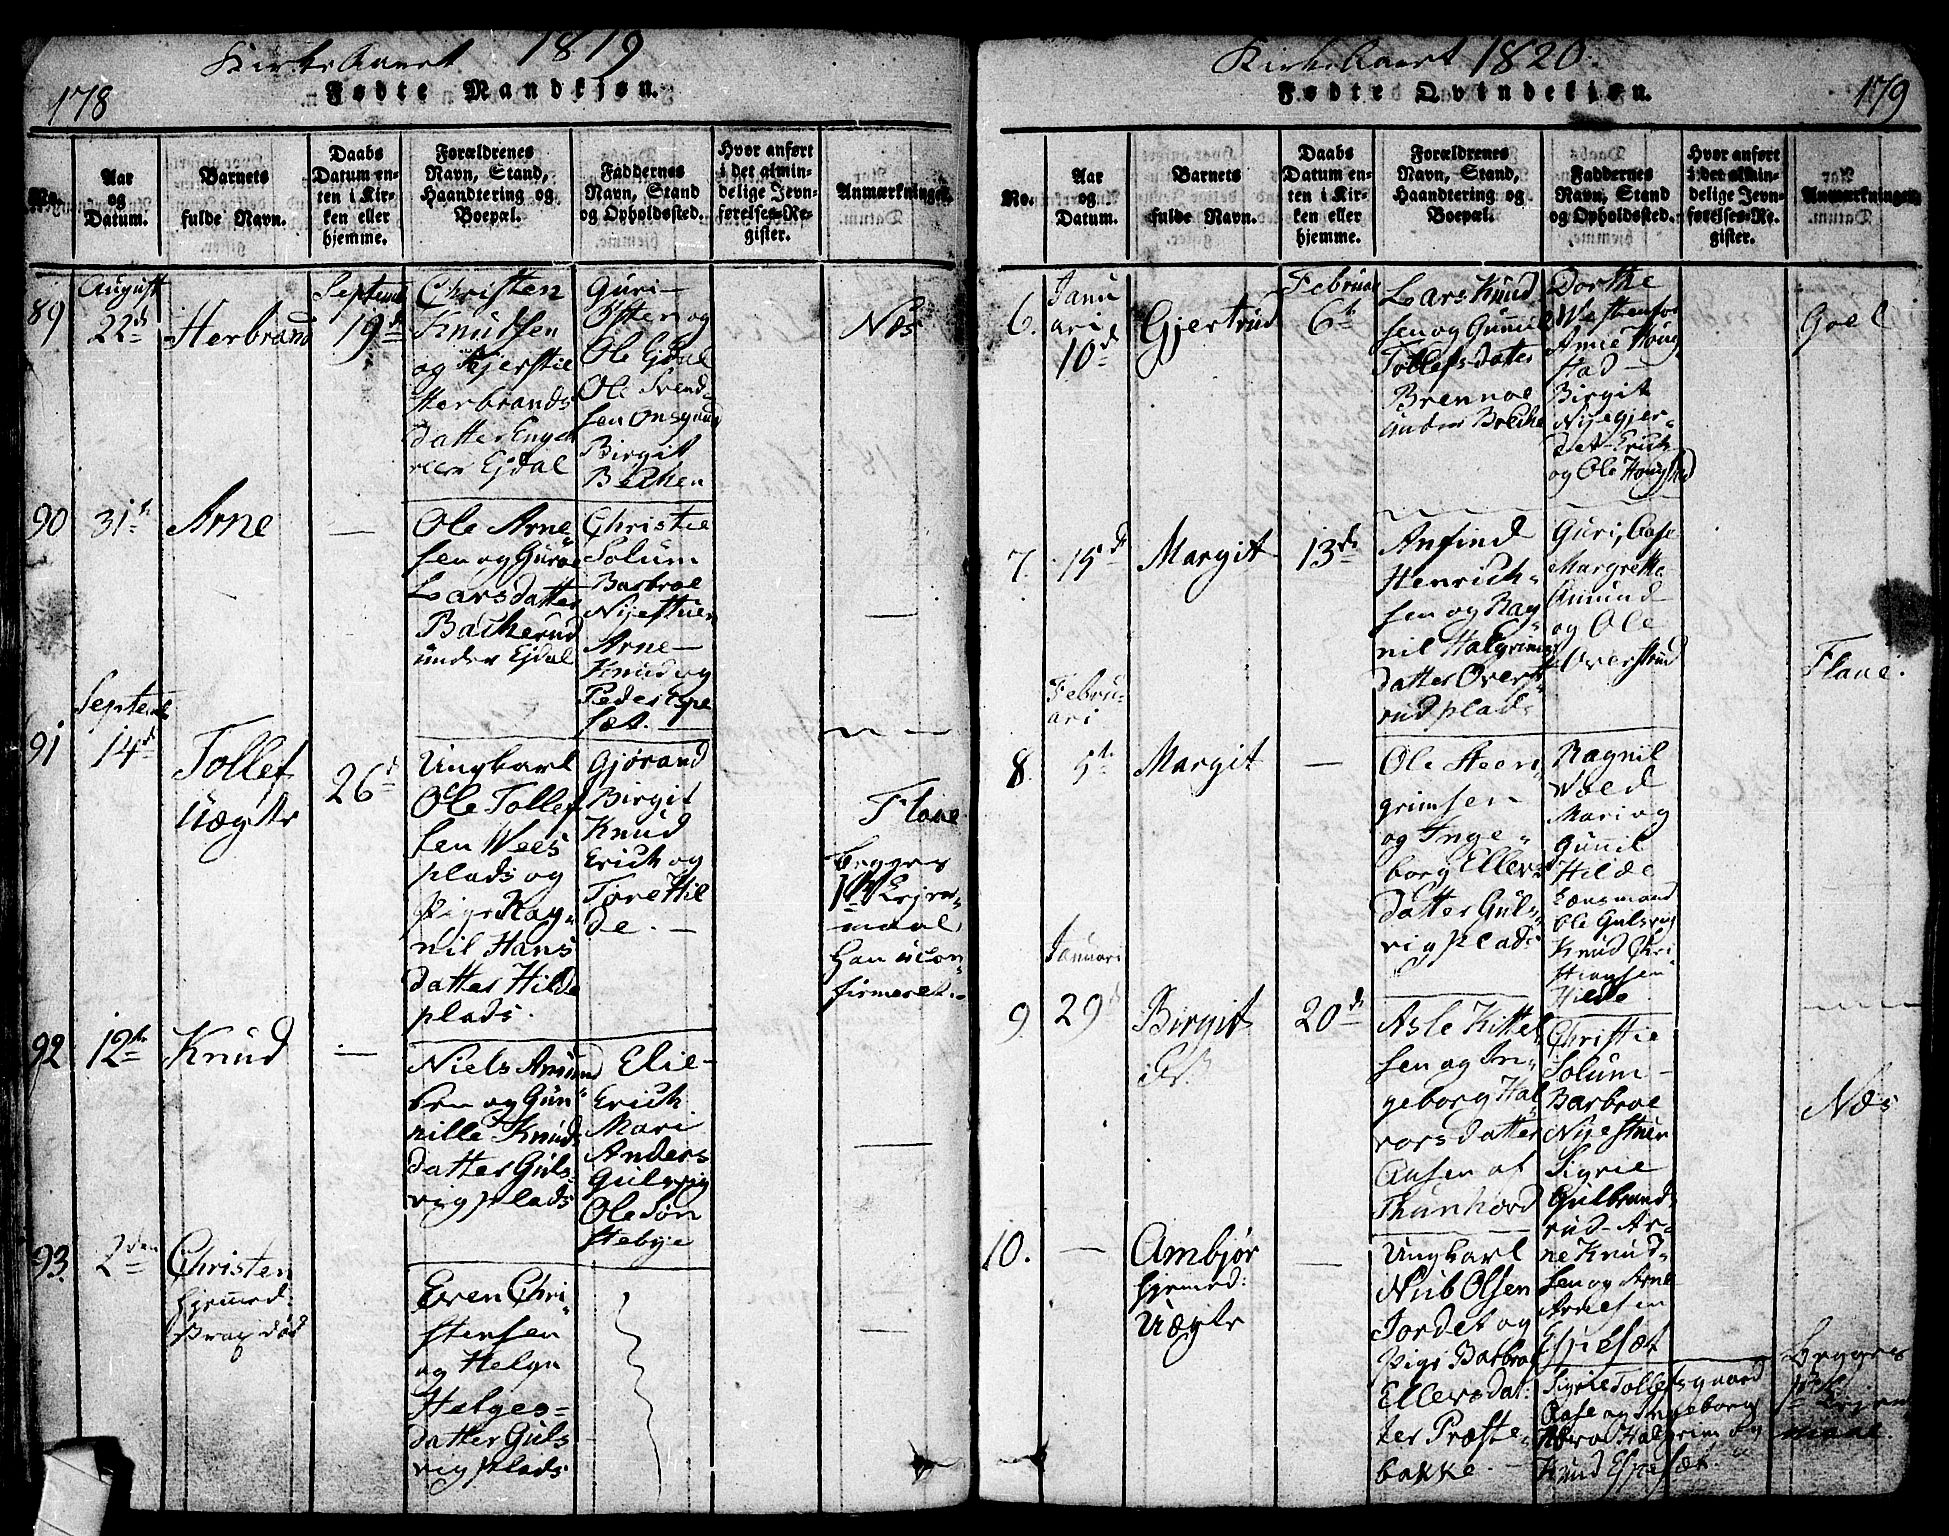 178
Kirke Aaret 1819
Fødte Mandkjøn.
No.
Aar og Datum.
Barnets fulde Navn.
Daabs Datum enten i Kirken eller hjemme.
Forældrenes Navn, Stand, Haandtering og Boepæl.
Faddernes Navn, Stand og Opholdssted.
Hvor anført i det almindelige Jevnførelses-Register.
Anmærkninger.
89
August
22de
Herbrand
Septemb
19de
Christen
Knudsen
og Kjerstie
Herbrands
datter Enge
Ejdal
Guri
Østen og
Ole Ejdal
Ole Svend
sen
Birgit
Bachen
Næs
90
31te
Arne
—
Ole Arne
sen og Guroe
Larsdatter
Bacherud
under Ejdal
Christie
Solum
Barbroe
Nijestuen
Arne
Knud og
Peder Espe
sæt.
—
Septemb
91
14de
Tollef
Uægte
26de
Ungkarl
Ole Tollef
sen Wees
plads og
Pige Rag
nil Hans
datter Hilde
plads.
Gjørand
Birgit
Knud
Erich og
Tore Hil
de. —
Flaae
begges
1ste Lejer
maal
han ucon
firmeret.
92
12te
Knud
—
Niels Amund
sen og Gun
nille Knuds
datter Guls
vig plads
Elie
Erich
Mari
Anders
Gulsvig
Ole Søn
stebye
—
93.
2den
Christen
hjemed:
Brag død
Even Chri
stensen
og Helga
Helges
datter Guls
vig plads
—
179
Kirke Aaret 1820.
Fødte Qvindekjøn.
No.
Aar og Datum.
Barnets fulde Navn.
Daabs Datum enten i Kirken eller hjemme.
Forældrenes Navn, Stand, Haandtering og Boepæl.
Faddernes Navn, Stand og Opholdssted.
Hvor anført i det almindelige Jevnførelses-Register.
Anmærkninger.
6.
Janu
ari
10de
Gjertrud
Februar
6te
Lars Knud
sen og Gunnil
Tollefsdatter
Brennoe
under Breche
Dorthe
Anne Houg
stad
Birgit
Nijegjer
det Erich
og Ole Hougstad
Goel
7.
15de
Margit
13de
Anfind
Henrich
sen og Rag
nil Halgrims
datter Overst
rud plads
Guri, Aase
Margrethe
Amund
og Ole
Overstrud
Flaae.
Febru
ari
8.
5te
Margit
—
Ole Steen
grimsen
og Inge
borg Ellers
datter Guls
vig plads
Ragnil
Wold
Mari og
Gunnil
Hilde
Lensmand
Ole Gulsvig
Knud Chri
stiansen
Hilde
—
Januari
9.
29de
Birgit
20de
Asle Kittel
sen og In
geborg Hal
vorsdatter
Aasen af
Thunhovd
Christie
Solum
Barbroe
Nijestuen
Sigrie
Gulbrands
rud Ar
ne Knud
sen og Arne
Arnesen
Espesæt
Næs
10.
—
Ambjør
hjemed:
Uægte
—
Ungkarl
Nub Olsen
Jordet og
Pige Barbroe
Ellersdat
ter Præste
bakke.
Sigrie Tollefsgaard
Aase og Ingeborg
Halgrim og
Knud Espesæt.
begges
1ste Lejer
maal.